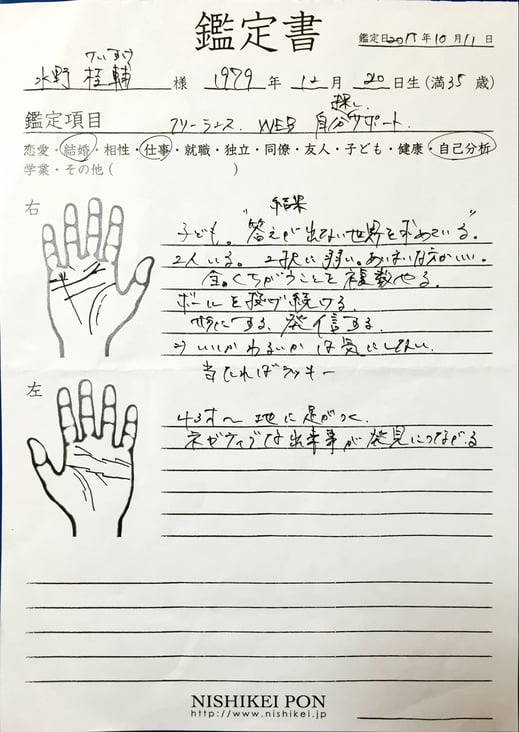 鑑定書
鑑定日2015年10月11日
けいすけ
水野 桂輔 様 1979年12月20日生(満35歳)
探し
鑑定項目 フリーランス. WEB 自分サポート.
恋愛・結婚・相性・仕事・就職・独立・同僚・友人・子ども・健康・自己分析
学業・その他( )
右
結果
子ども。"答えが出ない世界を求めている"。
2人いる。2択に弱い。あいまいな方がいい。
全くちがうことを複数やる。
ボールを投げ続ける。
する、発信する。
いいかわるいかは気にしない.
当たればラッキー
左
43才〜地に足がつく.
ネガティブな出来事が発見につながる
NISHIKEI PON
http://www.nishikei.jp